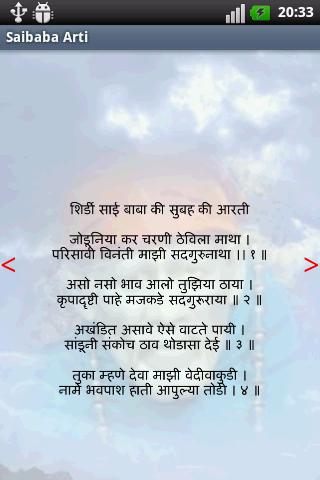 20:33
Saibaba Arti
शिर्डी साई बाबा की सुबह की आरती
जोडूनिया कर चरणी ठेविला माथा ।
परिसावी विनंती माझी सदगुरुनाथा ।। १ ॥
असो नसो भाव आलो तुझिया ठाया ।
कृपादृष्टी पाहे मजकडे सदगुरूराया ॥ २ ॥
< >
अखंडित असावे ऐसे वाटते पायी ।
सांडूनी संकोच ठाव थोडासा देई ॥ ३ ॥
तुका म्हणे देवा माझी वेदीवाकुडी ।
नामे भवपाश हाती आपुल्या तोडी । ४ ॥